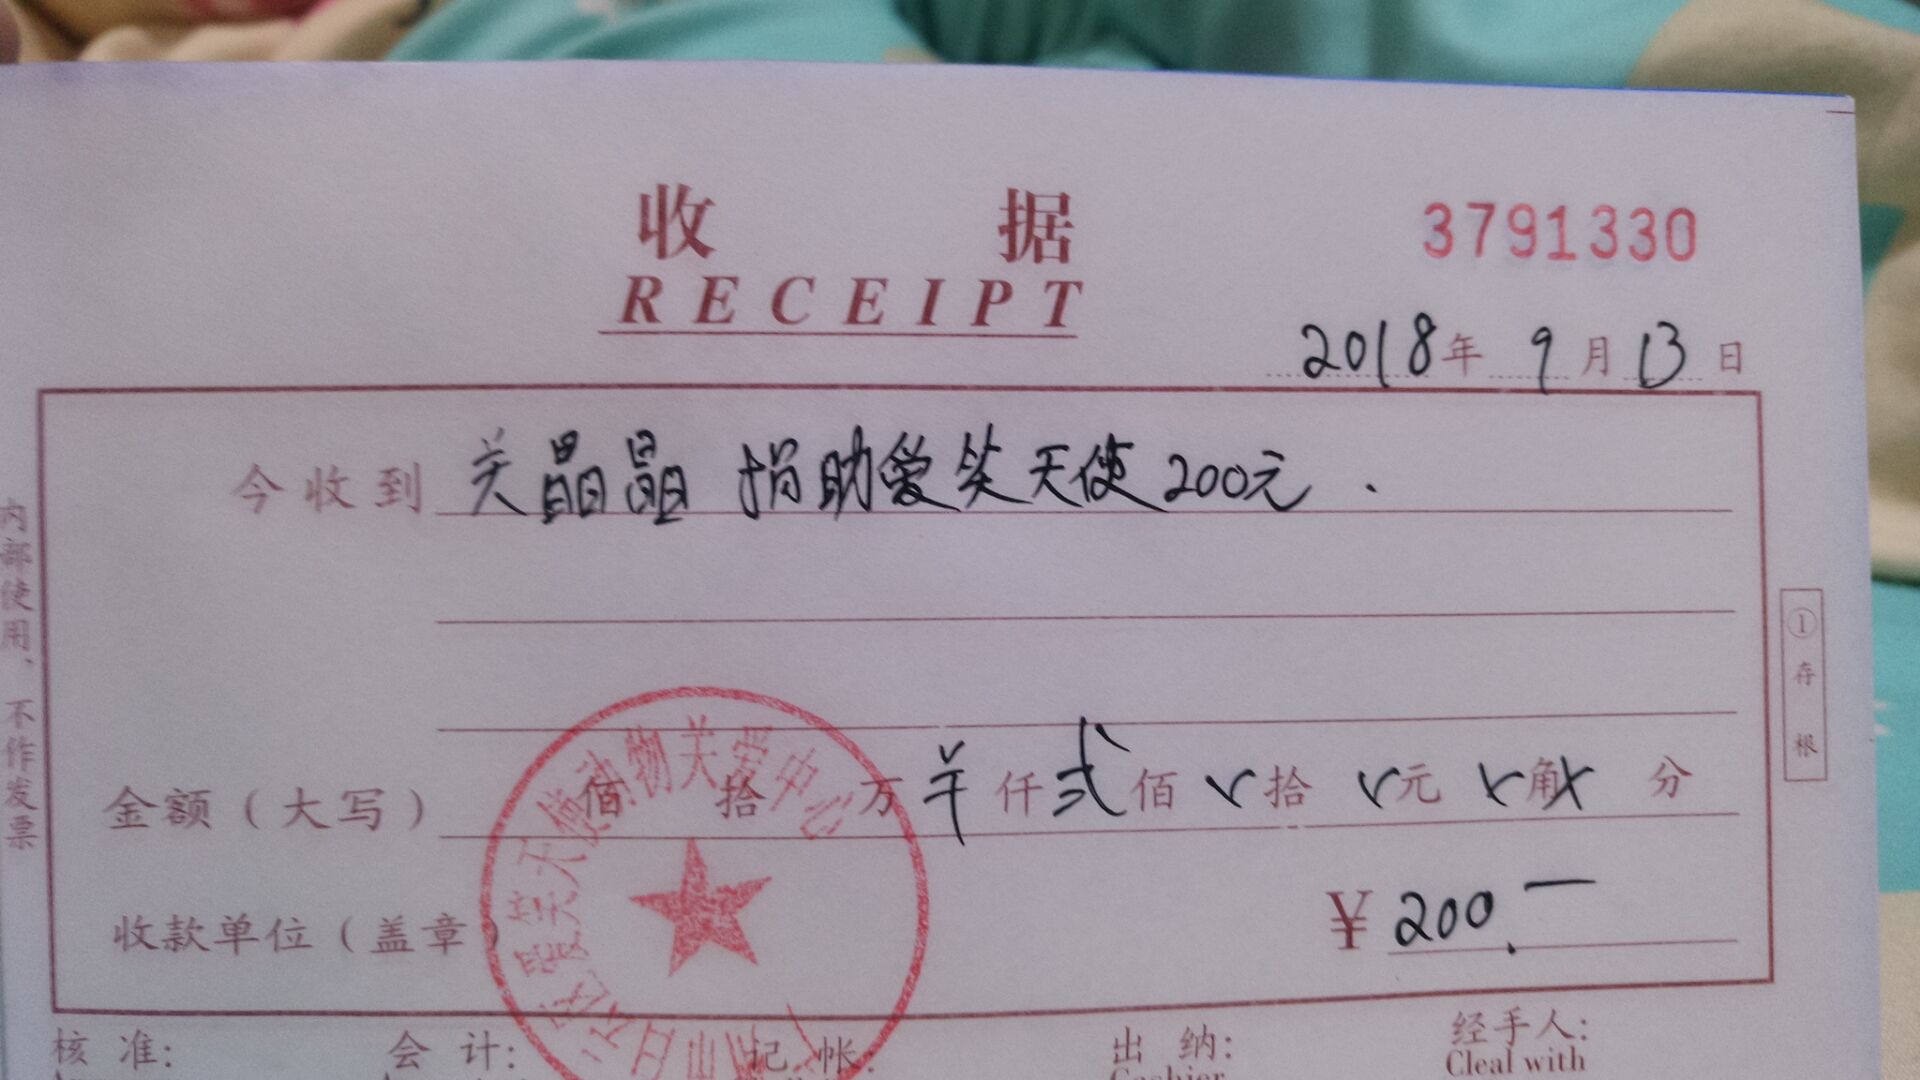 收 据
3791330
RECEIPT
2018年 9月13日
今收到 关晶晶 捐助爱笑天使200元.
金额(大写) 佰 拾 万 仟 贰佰 拾 元 角 分
收款单位(盖章)
¥ 200.—
内部使用、不作发票
① 存根
爱笑天使动物关爱中心
核 准: 会 计: 记 帐: 出 纳: 经手人:
Cashier Cleal with